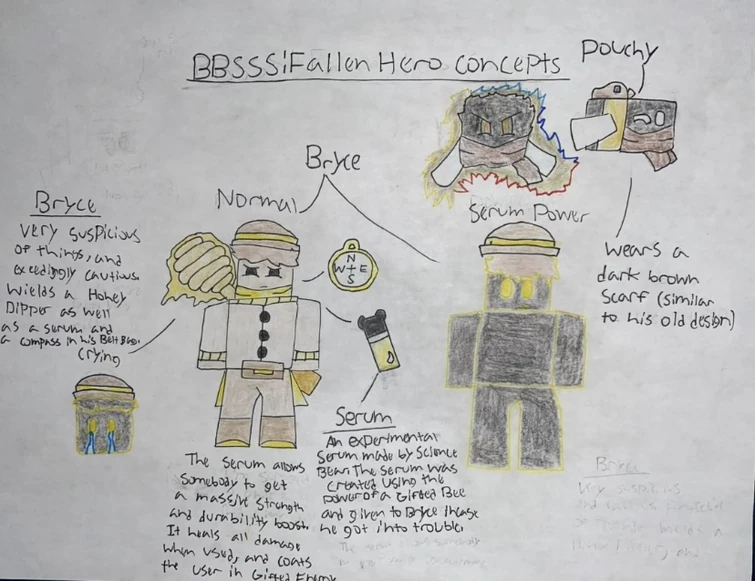 BBSSS:Fallen Hero concepts
Pouchy
Bryce
Normal
Serum Power
Bryce
Very suspicious
of things, and
exceedingly cautious
Wields a Honey
Dipper as well
as a serum and
a compass in his Belt Bag.
(crying)
N
W E
S
wears a
dark brown
scarf (similar
to his old design)
Serum
An experimental
serum made by Science
Bear. The serum was
created using the
power of a Gifted Bee
and given to Bryce incase
he got into trouble.
The serum allows
somebody to get
a massive strength
and durability boost.
It heals all damage
when used, and coats
the user in Gifted Energy
Bryce
Very suspicious